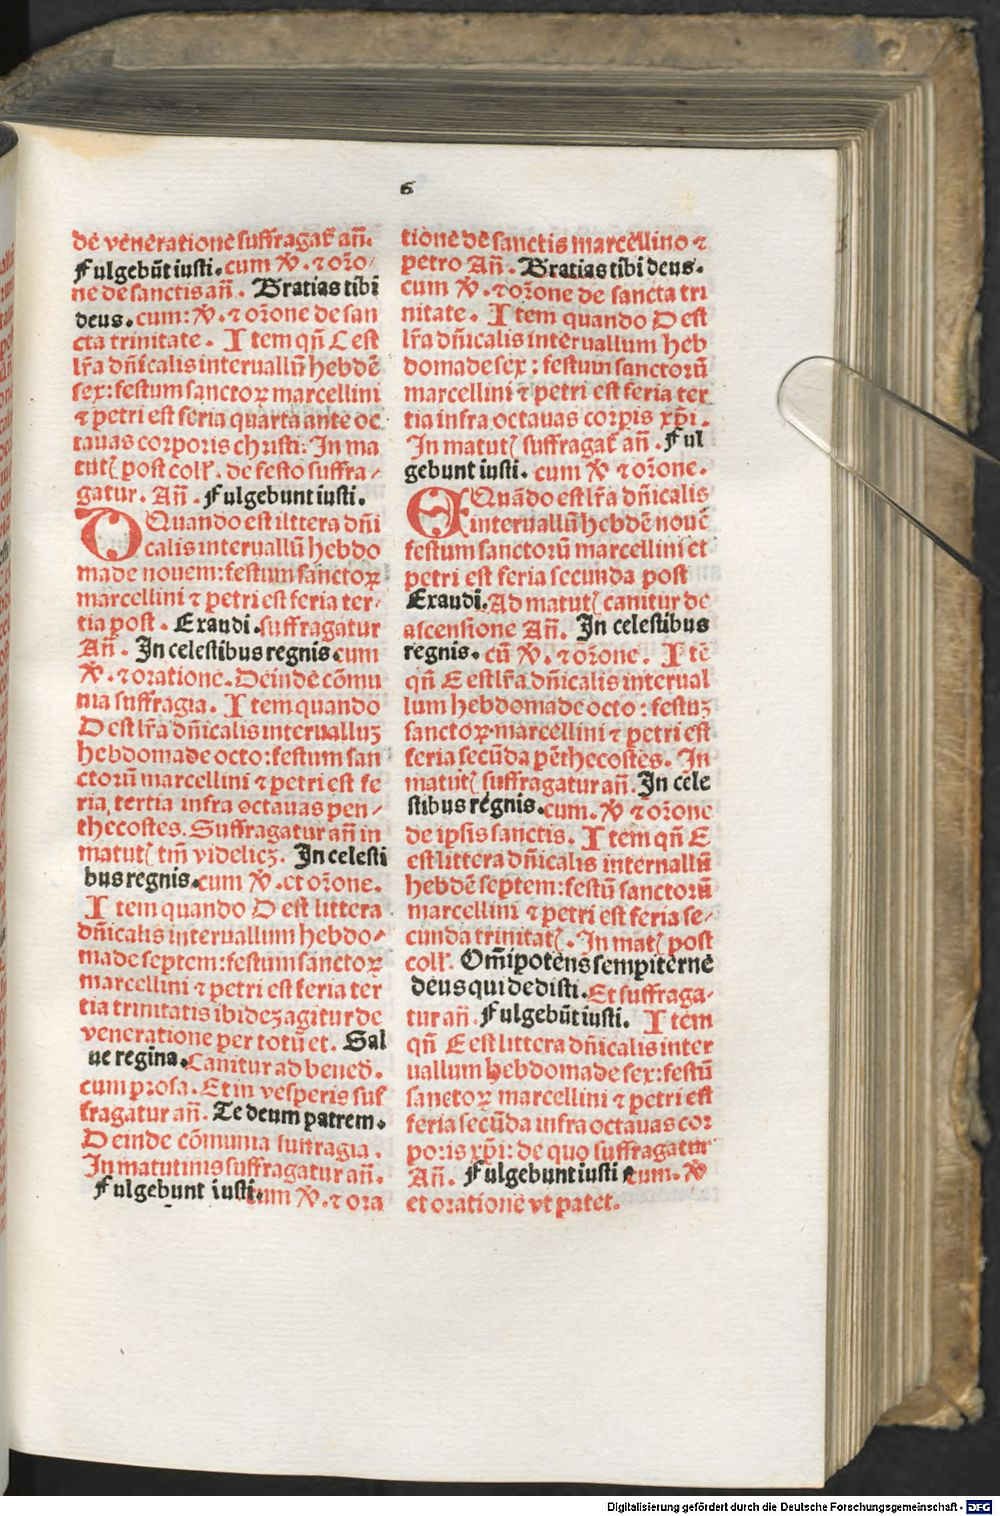 6
de veneratione suffragat᷑ añ.
Fulgebūt iusti. cum ℣. ⁊ oꝛo/
ne de sanctis añ. Gratias tibi
deus. cum: ℣. ⁊ oꝛone de san
cta trinitate. Item qñ C est
lr̄a dñicalis interuallū hebdē
sex: festum sanctoꝝ marcellini
⁊ petri est feria quarta ante oc
tauas corporis christi: In ma
tut᷑ post coll᷑. de festo suffra/
gatur. Añ. Fulgebunt iusti.
D Quando est littera dñi
calis interuallū hebdo
made nouem: festum sanctoꝝ
marcellini ⁊ petri est feria ter/
tia post. Exaudi. suffragatur
Añ. In celestibus regnis. cum
℣. ⁊ oratione. Deinde cōmu
nia suffragia. Item quando
D est lr̄a dñicalis interualluꝫ
hebdomade octo: festum san
ctorū marcellini ⁊ petri est fe
ria tertia infra octauas pen/
thecostes. Suffragatur añ in
matut᷑ tm̄ videlicꝫ. In celesti
bus regnis. cum ℣. et oꝛone.
Item quando D est littera
dñicalis interuallum hebdo/
made septem: festum sanctoꝝ
marcellini ⁊ petri est feria ter
tia trinitatis ibideꝫ agitur de
veneratione per totū et. Sal
ue regina. Canitur ad bened̄.
cum prosa. Et in vesperis suf
fragatur añ. Te deum patrem.
Deinde cōmunia suffragia.
In matutinis suffragatur añ.
Fulgebunt iusti. cum ℣. ⁊ ora
tione de sanctis marcellino ⁊
petro Añ. Gratias tibi deus.
cum ℣. ⁊ oꝛone de sancta tri
nitate. Item quando D est
lr̄a dñicalis interuallum heb
domade sex: festum sanctorū
marcellini ⁊ petri est feria ter
tia infra octauas corpis xp̄i.
In matut᷑ suffragat᷑ añ. Ful
gebunt iusti. cum ℣ ⁊ oꝛone.
E Quādo est lr̄a dñicalis
interuallū hebdē nouē
festum sanctorū marcellini et
petri est feria secunda post
Exaudi. Ad matut᷑ canitur de
ascensione Añ. In celestibus
regnis. cū ℣. ⁊ oꝛone. Itē
qñ E est lr̄a dñicalis interual
lum hebdomade octo: festuꝫ
sanctoꝝ marcellini ⁊ petri est
feria secūda pēthecostes. In
matut᷑ suffragatur añ. In cele
stibus regnis. cum. ℣ ⁊ oꝛone
de ipsis sanctis. Item qñ E
est littera dñicalis interuallū
hebdē septem: festū sanctorū
marcellini ⁊ petri est feria se/
cunda trinitat᷑. In mat᷑ post
coll᷑. Om̄ipotens sempiterne
deus qui dedisti. Et suffraga/
tur añ. Fulgebūt iusti. Item
qñ E est littera dñicalis inter
uallum hebdomade sex: festū
sanctoꝝ marcellini ⁊ petri est
feria secūda infra octauas cor
poris xp̄i: de quo suffragatur
Añ. Fulgebunt iusti cum. ℣
et oratione vt patet.
Digitalisierung gefördert durch die Deutsche Forschungsgemeinschaft - DFG